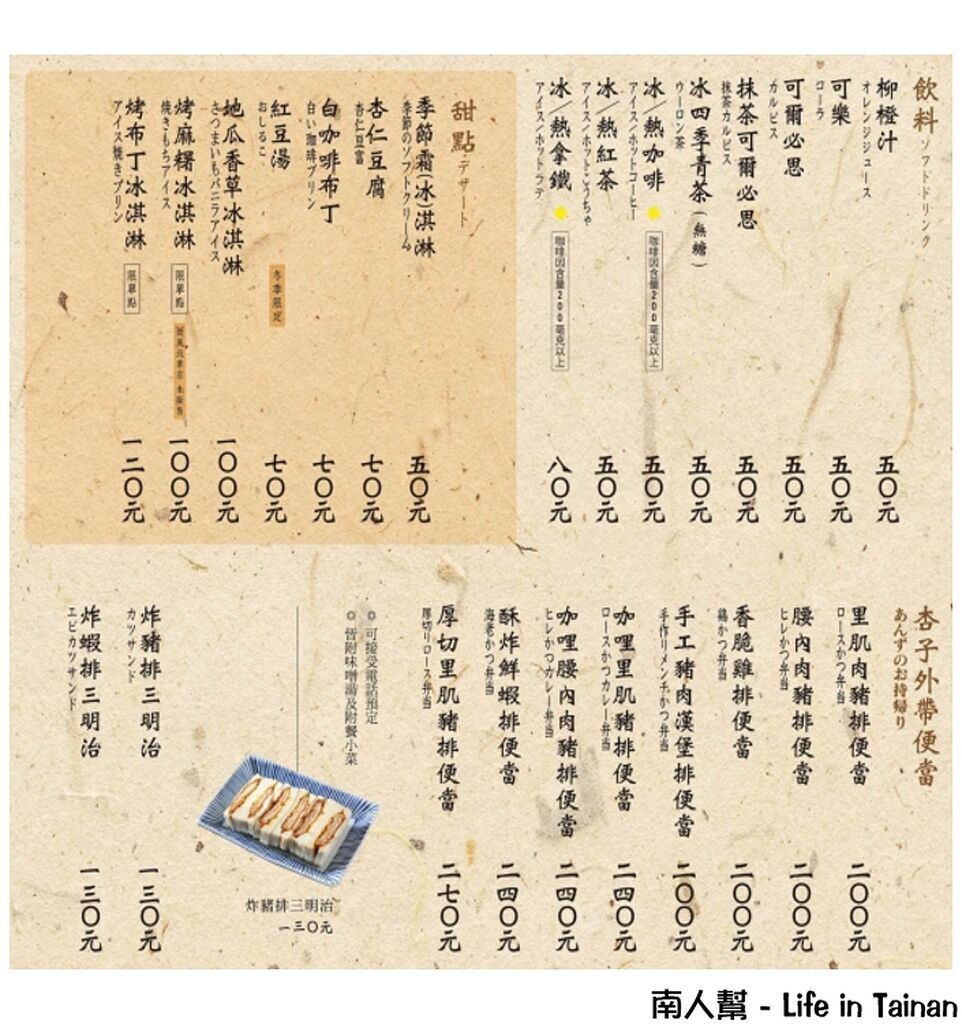 飲料 ソフトドリンク
柳橙汁
オレンジジュース
五〇元
可樂
コーラ
五〇元
可爾必思
カルピス
五〇元
抹茶可爾必思
抹茶カルピス
五〇元
冰四季青茶(無糖)
ウーロン茶
五〇元
冰/熱咖啡
アイス/ホットコーヒー
咖啡因含量200毫克以上
五〇元
冰/熱紅茶
アイス/ホットこうちゃ
五〇元
冰/熱拿鐵
アイス/ホットラテ
咖啡因含量200毫克以上
八〇元
甜點 デザート
季節霜(冰)淇淋
季節のソフトクリーム
五〇元
杏仁豆腐
杏仁豆富
七〇元
白咖啡布丁
白い珈琲プリン
七〇元
紅豆湯
おしるこ
冬季限定
七〇元
地瓜香草冰淇淋
さつまいもバニラアイス
一〇〇元
烤麻糬冰淇淋
焼きもちアイス
限單點
一〇〇元
烤布丁冰淇淋
アイス焼きプリン
限單點
一二〇元
杏子外帶便當
あんずのお持帰り
里肌肉豬排便當
ロースかつ弁当
二〇〇元
腰內肉豬排便當
ヒレかつ弁当
二〇〇元
香脆雞排便當
鶏かつ弁当
二〇〇元
手工豬肉漢堡排便當
手作りメンチかつ弁当
二〇〇元
咖哩里肌豬排便當
ロースかつカレー弁当
二四〇元
咖哩腰內肉豬排便當
ヒレかつカレー弁当
二四〇元
酥炸鮮蝦排便當
海老かつ弁当
二四〇元
厚切里肌豬排便當
厚切りロース弁当
二七〇元
◎可接受電話預定
◎皆附味噌湯及附餐小菜
炸豬排三明治
一三〇元
炸豬排三明治
カツサンド
一三〇元
炸蝦排三明治
エビカツサンド
一三〇元
南人幫 - Life in Tainan